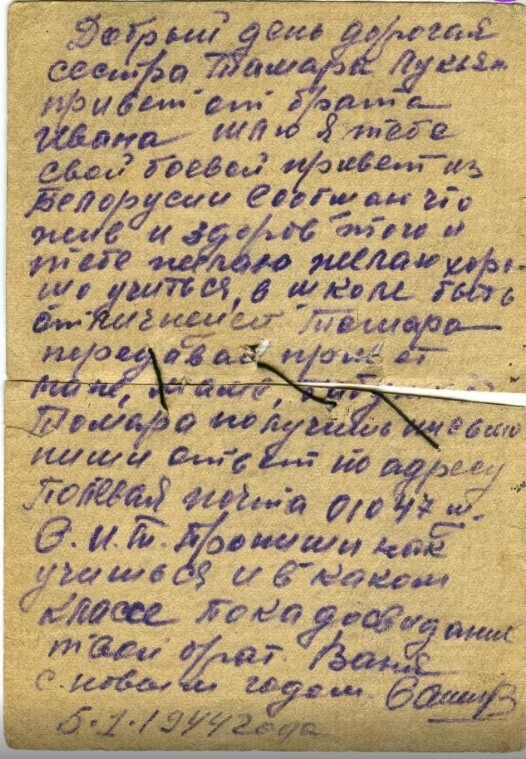 Добрый день дорогая
сестра Тамара Лукьян
привет от брата
Ивана шлю я тебе
свой боевой привет из
Белорусии Сообщаю что
жив и здоров того и
тебе желаю желаю хоро-
шо учиться, в школе быть
Тамара
передавай привет
папе, маме,
Тамара получишь письмо
пиши ответ по адресу
Полевая почта 01047 м.
С.И.Т. Пропиши как
учишься и в каком
классе пока досвидание
твой брат. Ваня
с новым годом.
5.1.1944 года